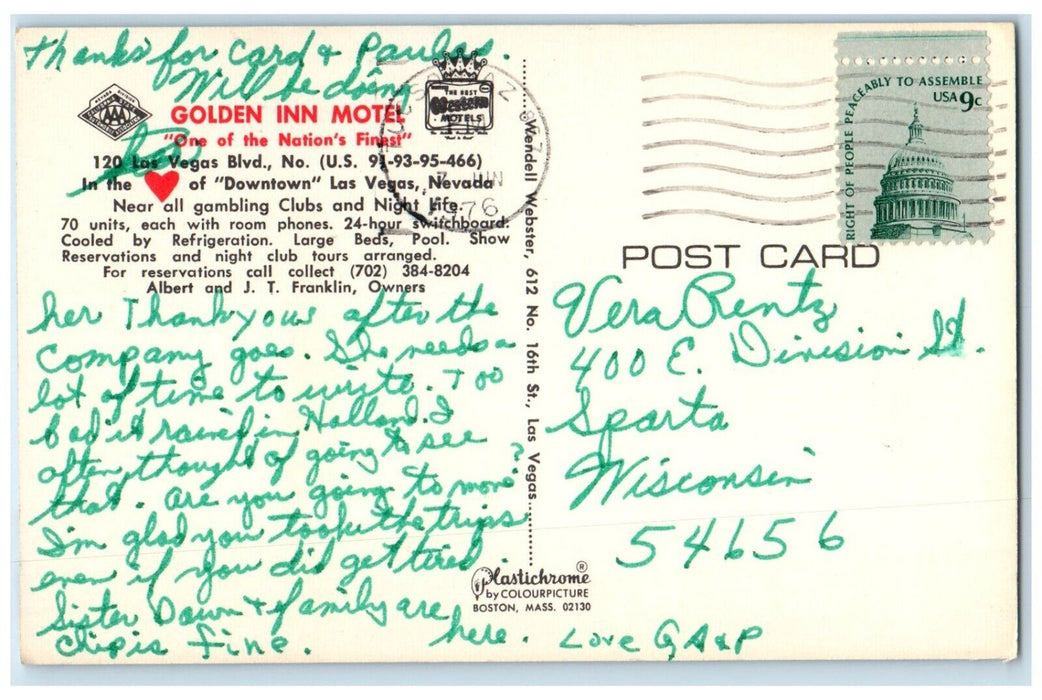 Thanks for card & Paulas.
Will be doing
GOLDEN INN MOTEL
"One of the Nation's Finest"
120 Las Vegas Blvd., No. (U.S. 91-93-95-466)
In the of "Downtown" Las Vegas, Nevada
Near all gambling Clubs and Night Life.
70 units, each with room phones. 24-hour switchboard.
Cooled by Refrigeration. Large Beds, Pool. Show
Reservations and night club tours arranged.
For reservations call collect (702) 384-8204
Albert and J. T. Franklin, Owners
her Thankyous after the
company goes. She needs a
lot of time to write. Too
bad it rained in Holland. I
often thought of going to see
that. Are you going to move?
I'm glad you took the trips
even if you did get tired.
Sister Dawn & family are
here.
Chip is fine.
Love G A & P
AAA
THE BEST
Western
MOTELS
JUN
1976
Wendell Webster, 612 No. 16th St., Las Vegas
Plastichrome®
by COLOURPICTURE
BOSTON, MASS. 02130
RIGHT OF PEOPLE PEACEABLY TO ASSEMBLE
USA 9c
POST CARD
Vera Rentz
400 E. Division St.
Sparta
Wisconsin
54656